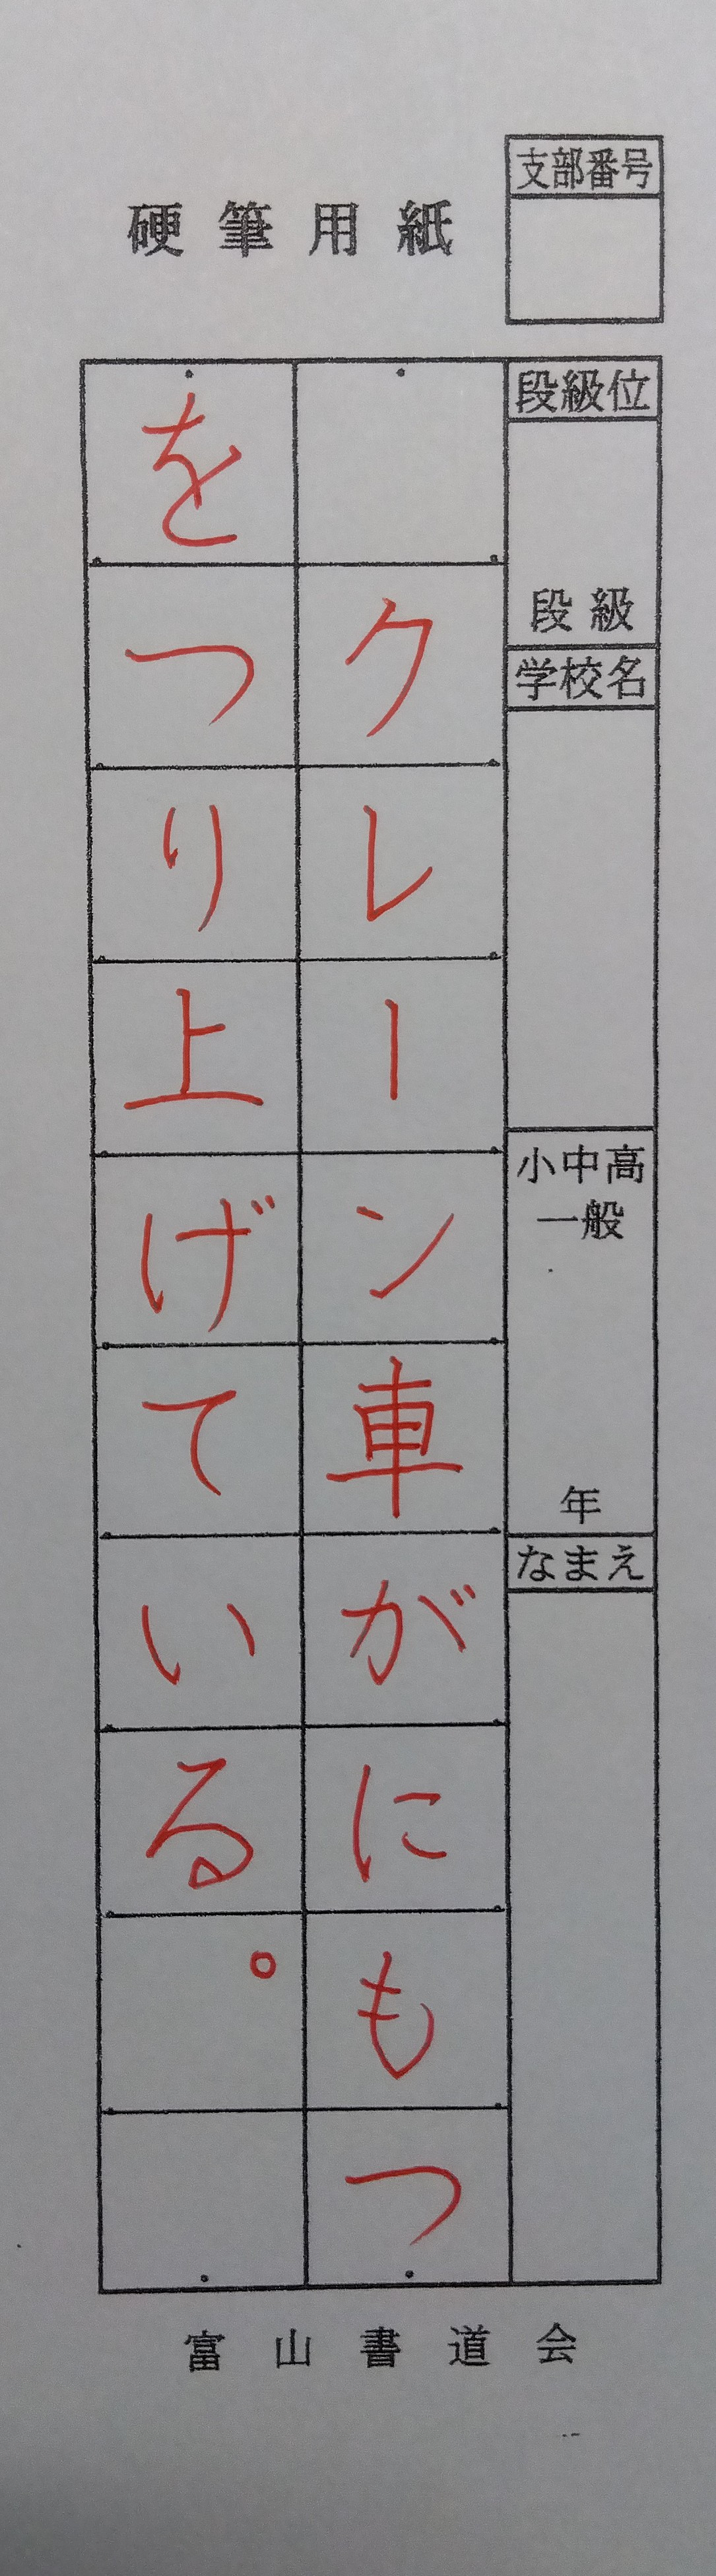 硬筆用紙
支部番号
段級位
段級
学校名
小中高
一般
年
なまえ
クレーン車がにもつ
をつり上げている。
富山書道会